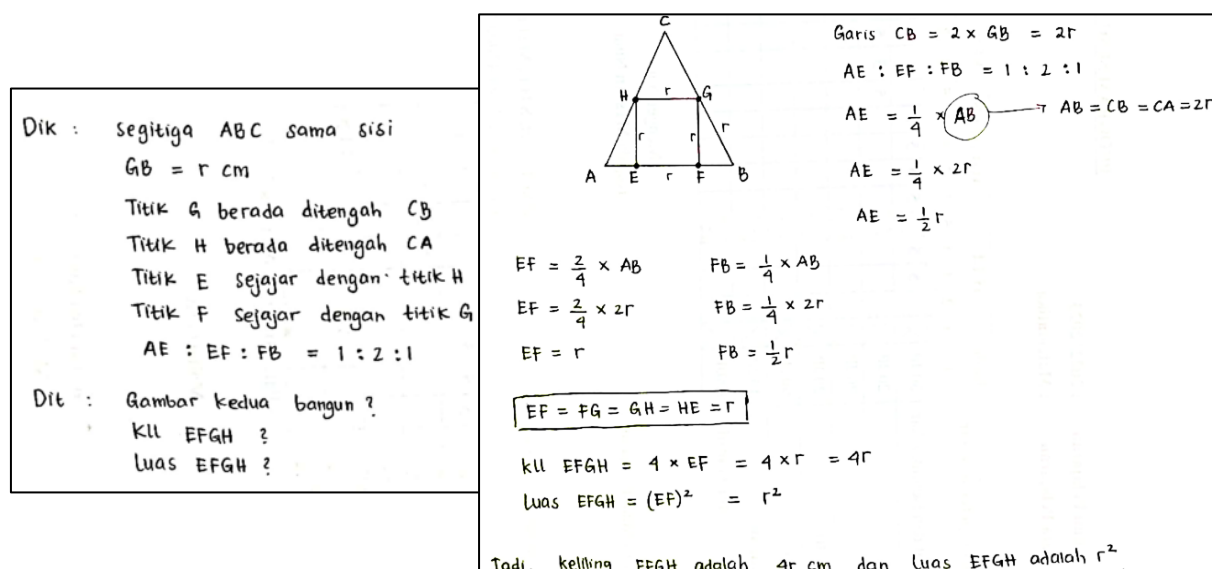 Dik : Segitiga ABC sama sisi
GB = r cm
Titik G berada ditengah CB
Titik H berada ditengah CA
Titik E sejajar dengan titik H
Titik F sejajar dengan titik G
AE : EF : FB = 1 : 2 : 1
Dit : Gambar kedua bangun ?
Kll EFGH ?
Luas EFGH ?
C
H r G
r r r
A E r F B
Garis CB = 2 × GB = 2r
AE : EF : FB = 1 : 2 : 1
AE = 1/4 × AB → AB = CB = CA = 2r
AE = 1/4 × 2r
AE = 1/2 r
EF = 2/4 × AB FB = 1/4 × AB
EF = 2/4 × 2r FB = 1/4 × 2r
EF = r FB = 1/2 r
EF = FG = GH = HE = r
kll EFGH = 4 × EF = 4 × r = 4r
Luas EFGH = (EF)² = r²
Jadi, keliling EFGH adalah 4r cm dan luas EFGH adalah r²